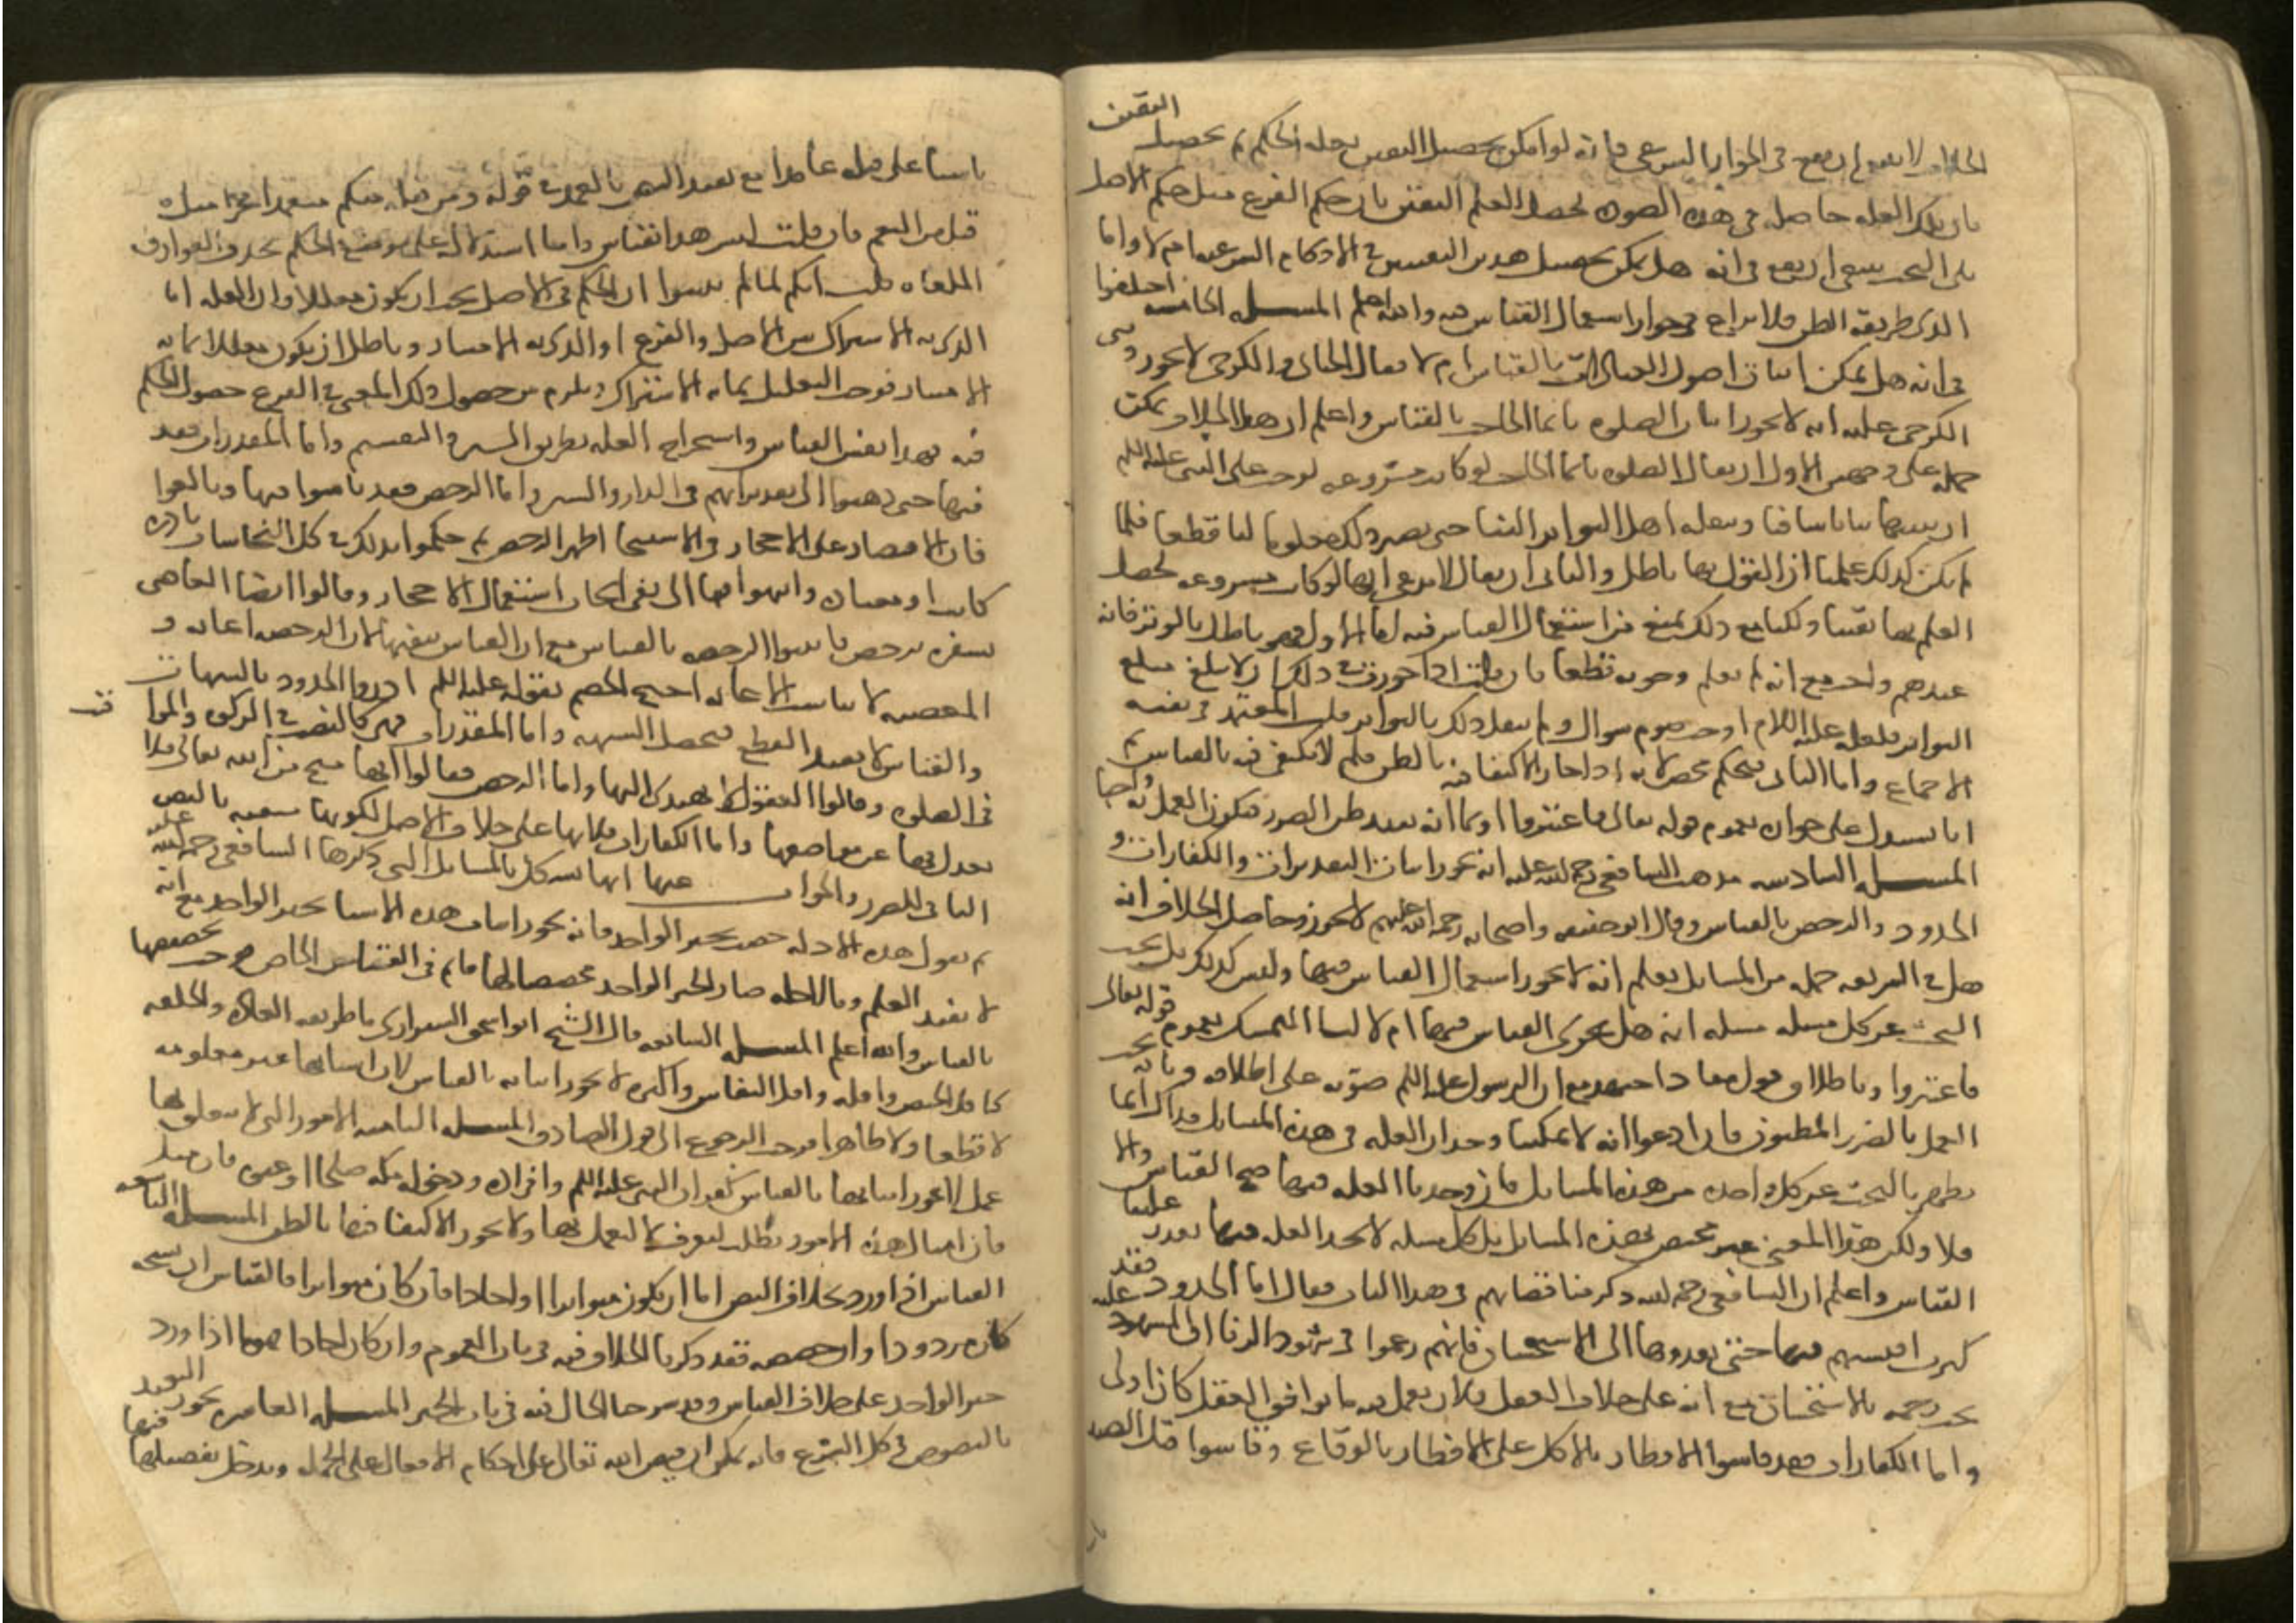 الخلاف لا ينبغي ان يقع في الجواز الشرعي فانه لو امكن تحصيل اليقين بعلة الحكم ثم تحصيل اليقين
بان تلك العلة حاصلة في هذه الصورة لحصل العلم اليقين بان حكم الفرع مثل حكم الاصل
بلى البحث ينبغي ان يقع في انه هل يمكن تحصيل هذين اليقينين في الاحكام الشرعية ام لا واما
الذي طريقه الظن فلا نزاع في جواز استعمال القياس فيه والله اعلم المسلة الخامسة اختلفوا
في انه هل يمكن اثبات اصول العبادات بالقياس ام لا فقال الجبائي والكرخي لا يجوز وبنى
الكرخي عليه انه لا يجوز اثبات الصلوة بايما الحاجب بالقياس واعلم ان هذا الخلاف يمكن
حمله على وجهين الاول ان يقال الصلوة بايما الحاجب لو كانت مشروعة لوجب على النبي عليه السلم
ان يبينها بيانا شافيا وينقله اهل التواتر الينا حتى يصير ذلك معلوما لنا قطعا فلما
لم يكن كذلك علمنا ان القول بها باطل والثاني ان يقال لا ندعي انها لو كانت مشروعة لحصل
العلم بها يقينا ولكنا مع ذلك نمنع من استعمال القياس فيه اما الاول فهو باطل بالوتر فانه
عندهم واجب مع انه لم يعلم وجوبه قطعا فان قلت اذا جوزت في ذلك ان لا يبلغ مبلغ
التواتر فلعله عليه السلام اوجب صوم شوال ولم ينقل ذلك بالتواتر قلت المعتمد في نفيه
الاجماع واما الثاني فتحكم محض لانه اذا جاز الاكتفا فيه بالظن فلم لا يكتفى فيه بالقياس ثم
انا نستدل على جوازه بعموم قوله تعالى فاعتبروا او بما انه يفيد ظن الضرر فيكون العمل به واجبا
المسلة السادسة مذهب الشافعي رحمة الله عليه انه يجوز اثبات التقديرات والكفارات و
الحدود والرخص بالقياس وقال ابو حنيفة واصحابه رحمة الله عليهم لا يجوز وحاصل الخلاف انه
هل في الشريعة جملة من المسايل يعلم انه لا يجوز استعمال القياس فيها وليس كذلك بل يجب
البحث عن كل مسلة مسلة انه هل يجري القياس فيها ام لا لنا التمسك بعموم قوله تعالى
فاعتبروا وباطلاق قول معاذ اجتهد مع ان الرسول عليه السلم صوبه على اطلاقه وبانه يجب
العمل بالضرر المظنون فان ادعوا انه لا يمكننا وجدان العلة في هذه المسايل فذاك انما
يظهر بالبحث عن كل واحدة من هذه المسايل فان وجدنا العلة فيها صح القياس والا
فلا ولكن هذا المعنى غير مختص بهذه المسايل بل كل مسلة لا نجد العلة فيها تعذر علينا
القياس واعلم ان الشافعي رحمه الله ذكر مناقضاتهم في هذا الباب فقال اما الحدود فقد
كثرت اقيستهم فيها حتى تعدوها الى الاستحسان فانهم زعموا في شهود الزنا ان المشهود عليه
يجب رجمه بالاستحسان مع انه على خلاف العقل فلان يعمل به بما يوافق العقل كان اولى
واما الكفارات فقد قاسوا الافطار بالاكل على الافطار بالوقاع وقاسوا قتل الصيد
ناسيا على قتله عامدا مع تقييد النص بالعمد في قوله ومن قتله منكم متعمدا فجزا مثل ما
قتل من النعم فان قلت ليس هذا بقياس وانما استدلال على موضع الحكم بحذف الفوارق
الملغاة قلت انكم لما لم تبينوا ان الحكم في الاصل يجب ان يكون معللا وان العلة اما
الذي به الاشتراك بين الاصل والفرع او الذي به الامتياز وباطل ان يكون معللا بما به
الامتياز فوجب التعليل بما به الاشتراك ويلزم من حصول ذلك المعنى في الفرع حصول الحكم
فيه فهذا نفس القياس واستخراج العلة بطريق السبر والتقسيم واما المقدرات فقد
فيها حتى ذهبوا الى تقديراتهم في الدلو والبير واما الرخص فقد قاسوا فيها وبالغوا
فان الاقتصار على الاحجار في الاستنجا اظهر الرخص ثم حكموا بذلك في كل النجاسات نادرة
كانت او معتادة وانتهوا فيها الى نفي ايجاب استعمال الاحجار وقالوا ايضا العاصي
بسفره يترخص فاثبتوا الرخصة بالقياس مع ان القياس ينفيها لان الرخصة اعانة و
المعصية لا تناسب الاعانة احتج الخصم بقوله عليه السلم ادروا الحدود بالشبهات
والقياس لا يفيد القطع فتحصل الشبهة واما المقدرات فهي كالنصب في الزكوة والمواقيت
في الصلوة وقالوا العقول لا تهتدي اليها واما الرخص فقالوا انها منح من الله تعالى فلا
يعدل بها عن مواضعها واما الكفارات فلانها على خلاف الاصل لكونها منفية بالنص
النافي للضرر والجواب عنها انها تشكل بالمسايل التي ذكرها الشافعي رحمة الله عليه
ثم نقول هذه الادلة خصت بخبر الواحد فانه يجوز اثبات هذه الاشيا بخبر الواحد مع انه
لا يفيد العلم وبالجملة صار الخبر الواحد مخصصا لها فلم في القياس الخاص يوجب تخصيصها
بالقياس والله اعلم المسلة السابعة قال الشيخ ابو اسحق الشيرازي ما طريقه العادة والخلقة
كاقل الحيض واقله واقل النفاس واكثره لا يجوز اثباته بالقياس لان اسبابها غير معلومة
لا قطعا ولا ظاهرا فوجب الرجوع الى قول الصادق المسلة الثامنة الامور التي لا يتعلق بها
عمل لا يجوز اثباتها بالقياس كقران النبي عليه السلم وافراده ودخوله مكة صلحا او عنوة فان
فان امثال هذه الامور تطلب لتعرف لا لتعمل بها ولا يجوز الاكتفا فيها بالظن المسلة التاسعة
القياس اذا ورد بخلاف النص اما ان يكون متواترا او احادا فان كان متواترا فالقياس ان نسخه
كان مردودا وان خصصه فقد ذكرنا الخلاف فيه في باب العموم وان كان احادا فهو ما اذا ورد
خبر الواحد على خلاف القياس وقد شرحنا الحال فيه في باب الخبر المسلة العاشرة يجوز التعبد
بالنصوص في كل الشرع فانه يمكن ان ينص الله تعالى على احكام الافعال على الجملة ويدخل تفصيلها فيها